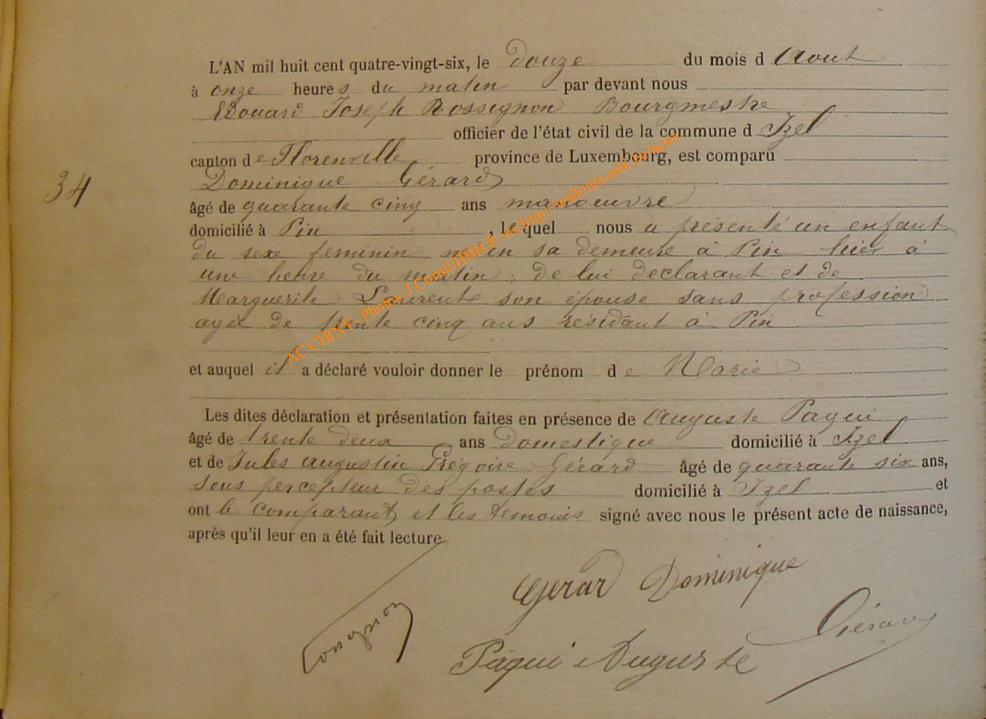 L'AN mil huit cent quatre-vingt-six, le douze du mois d Aout
à onze heures du matin par devant nous
Edouard Joseph Rossignon Bourgmestre
officier de l'état civil de la commune d Izel
canton de Florenville province de Luxembourg, est comparu
Dominique Gérard
34
âgé de quarante cinq ans manoeuvre
domicilié à Pin , lequel nous a présenté un enfant
du sexe feminin né en sa demeure à Pin hier à
une heure du matin, de lui declarant et de
Marguerite Laurent son épouse sans profession
agée de trente cinq ans résidant à Pin
et auquel il a déclaré vouloir donner le prénom de Marie
Les dites déclaration et présentation faites en présence de Auguste Paqui
âgé de trente deux ans domestique domicilié à Izel
et de Jules Augustin Grégoire Gérard âgé de quarante six ans,
sous percepteur des postes domicilié à Izel et
ont le comparant et les temoins signé avec nous le présent acte de naissance,
après qu'il leur en a été fait lecture
Gerard Dominique
Rossignon
Gérard
Paqui Auguste